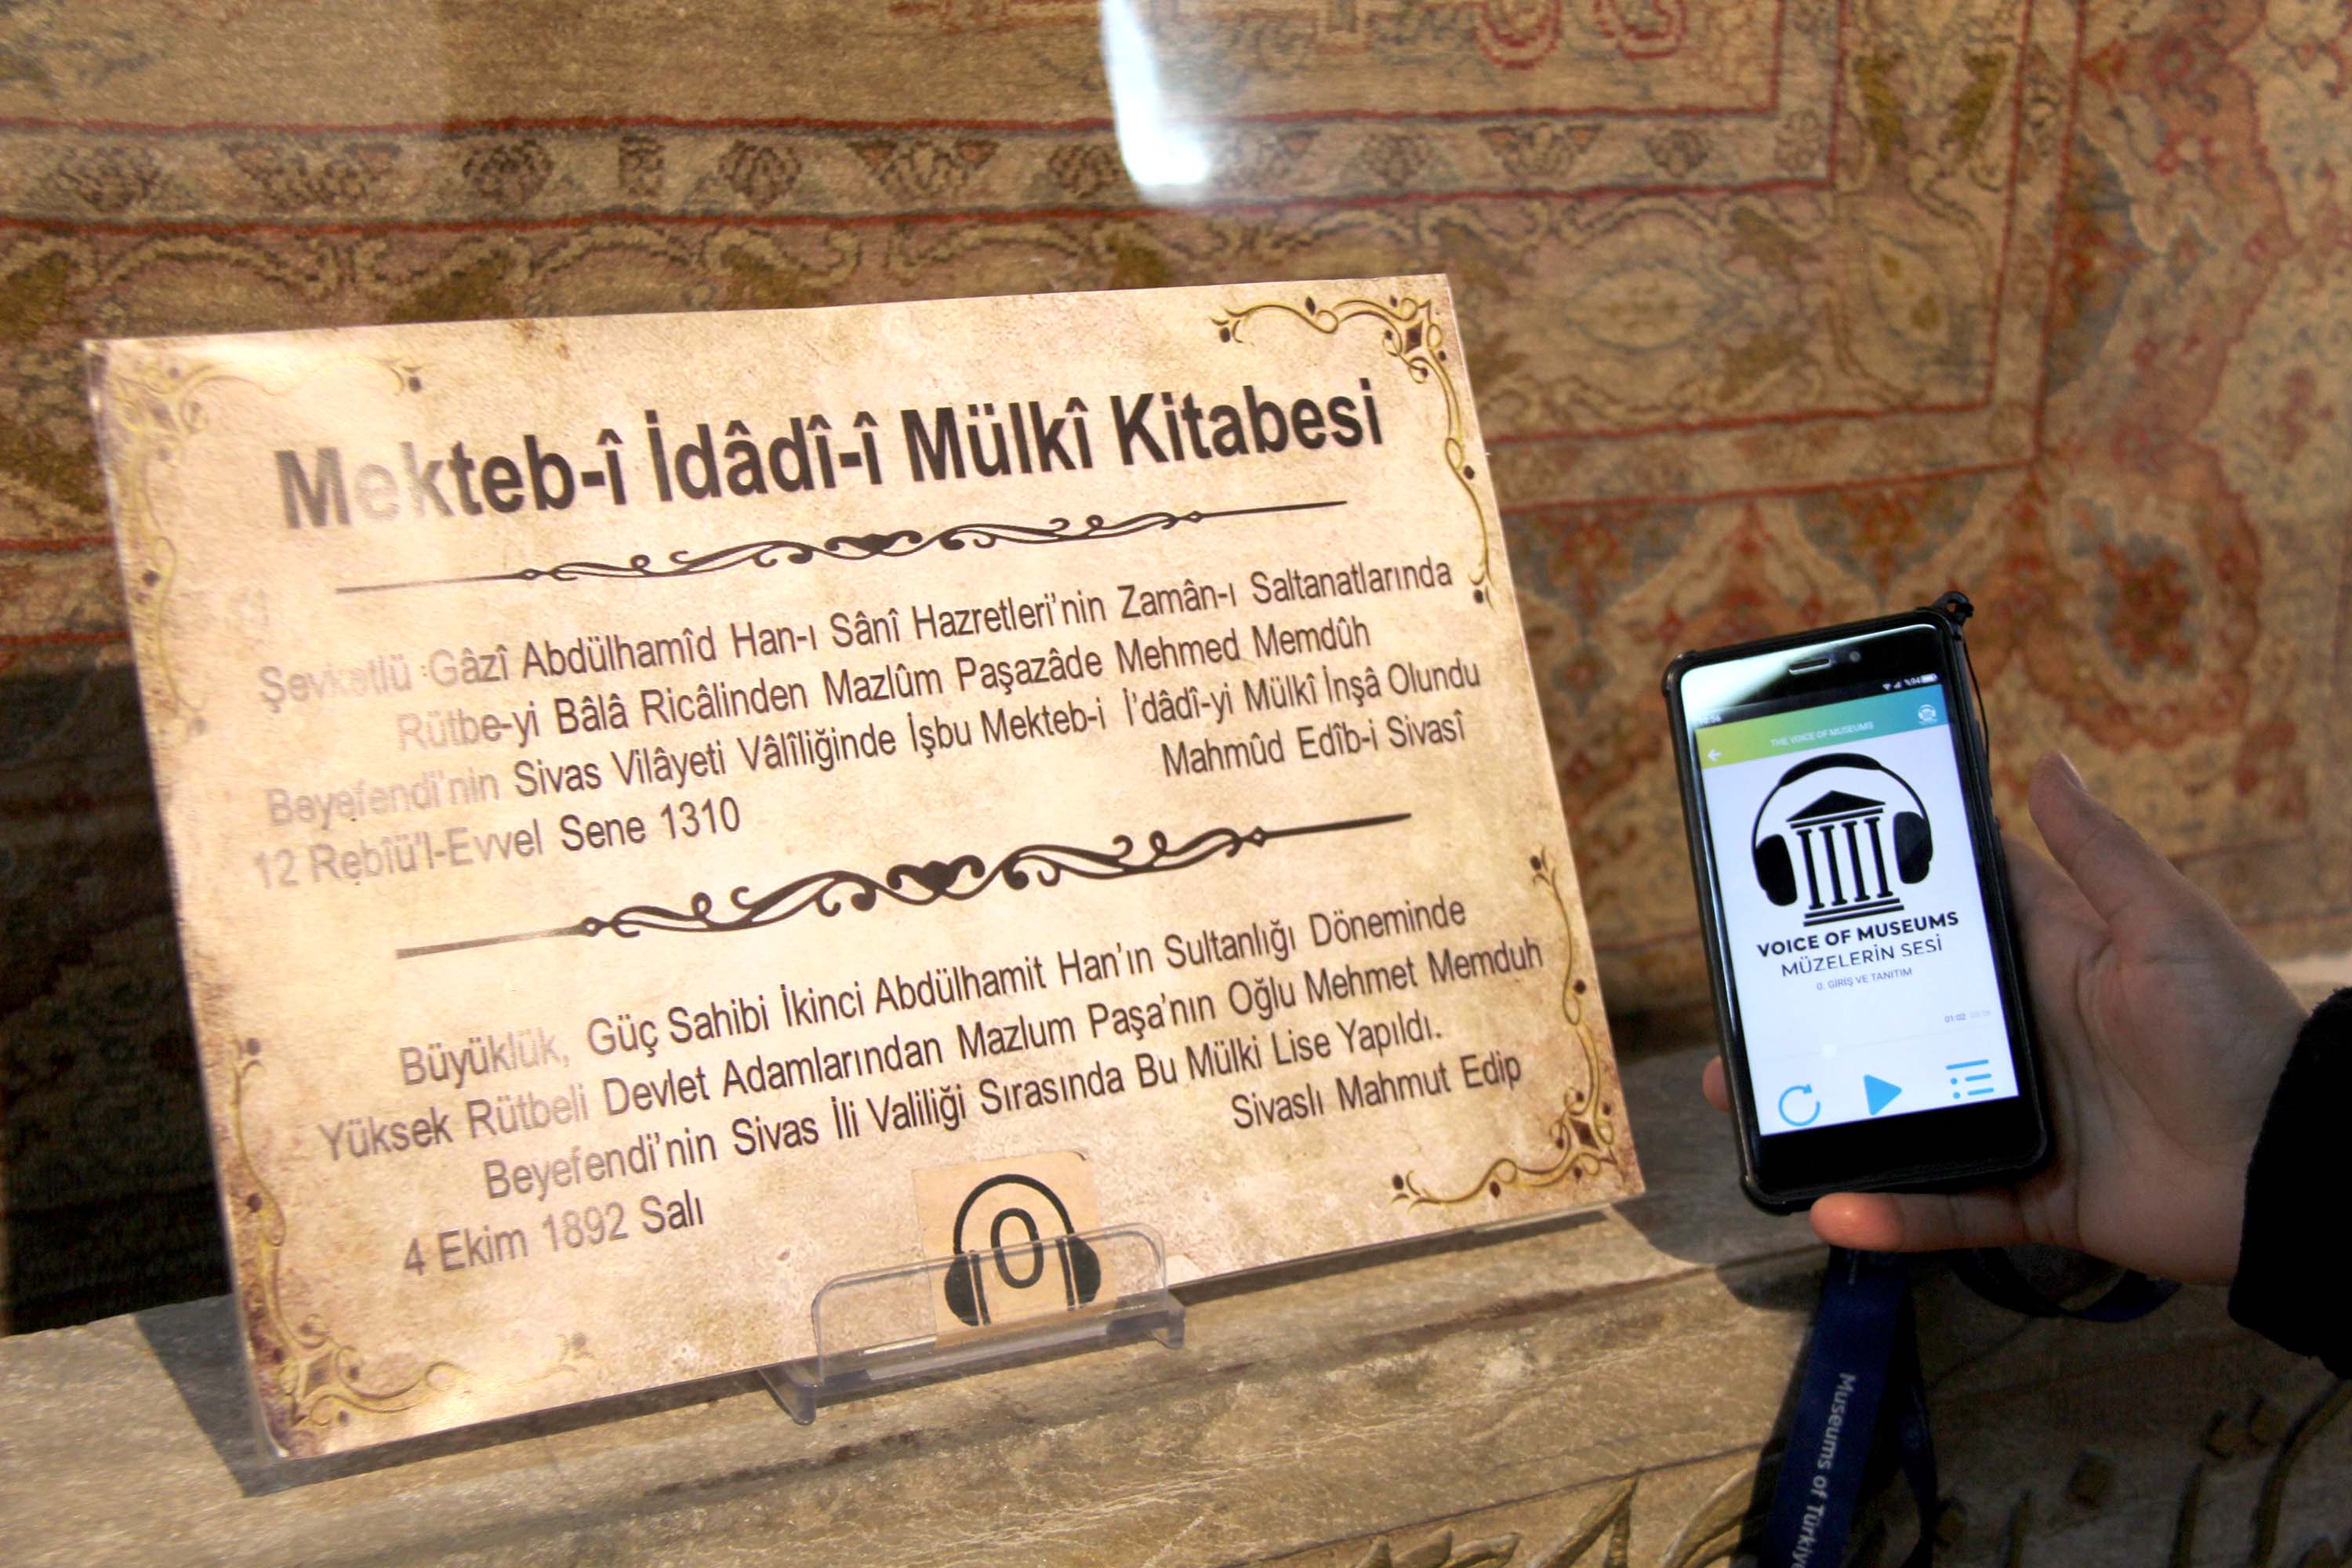 Mekteb-î İdâdî-î Mülkî Kitabesi
Şevketlü Gâzî Abdülhamîd Han-ı Sânî Hazretleri'nin Zamân-ı Saltanatlarında
Rütbe-yi Bâlâ Ricâlinden Mazlûm Paşazâde Mehmed Memdûh
Beyefendi'nin Sivas Vilâyeti Vâlîliğinde İşbu Mekteb-i İ'dâdî-yi Mülkî İnşâ Olundu
Mahmûd Edîb-i Sivasî
12 Rebîü'l-Evvel Sene 1310
Büyüklük, Güç Sahibi İkinci Abdülhamit Han'ın Sultanlığı Döneminde
Yüksek Rütbeli Devlet Adamlarından Mazlum Paşa'nın Oğlu Mehmet Memduh
Beyefendi'nin Sivas İli Valiliği Sırasında Bu Mülki Lise Yapıldı.
Sivaslı Mahmut Edip
4 Ekim 1892 Salı
0
%94
THE VOICE OF MUSEUMS
VOICE OF MUSEUMS
MÜZELERİN SESİ
0. GİRİŞ VE TANITIM
01:02
Museums of Türkiye